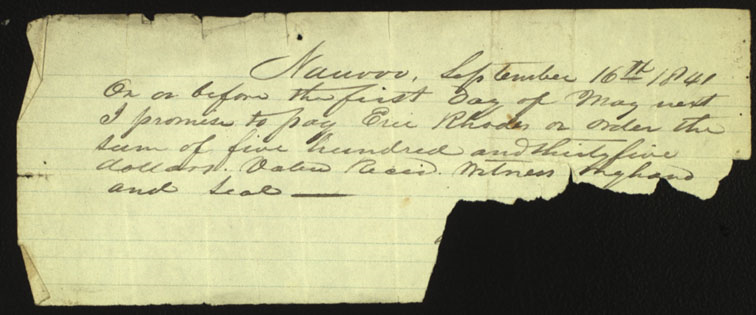 Nauvoo, September 16th 1841
On or before the first Day of May next
I promise to pay Eric Rhodes or order the
sum of five hundred and thirty five
dollars. Value Recd. Witness my hand
and Seal —